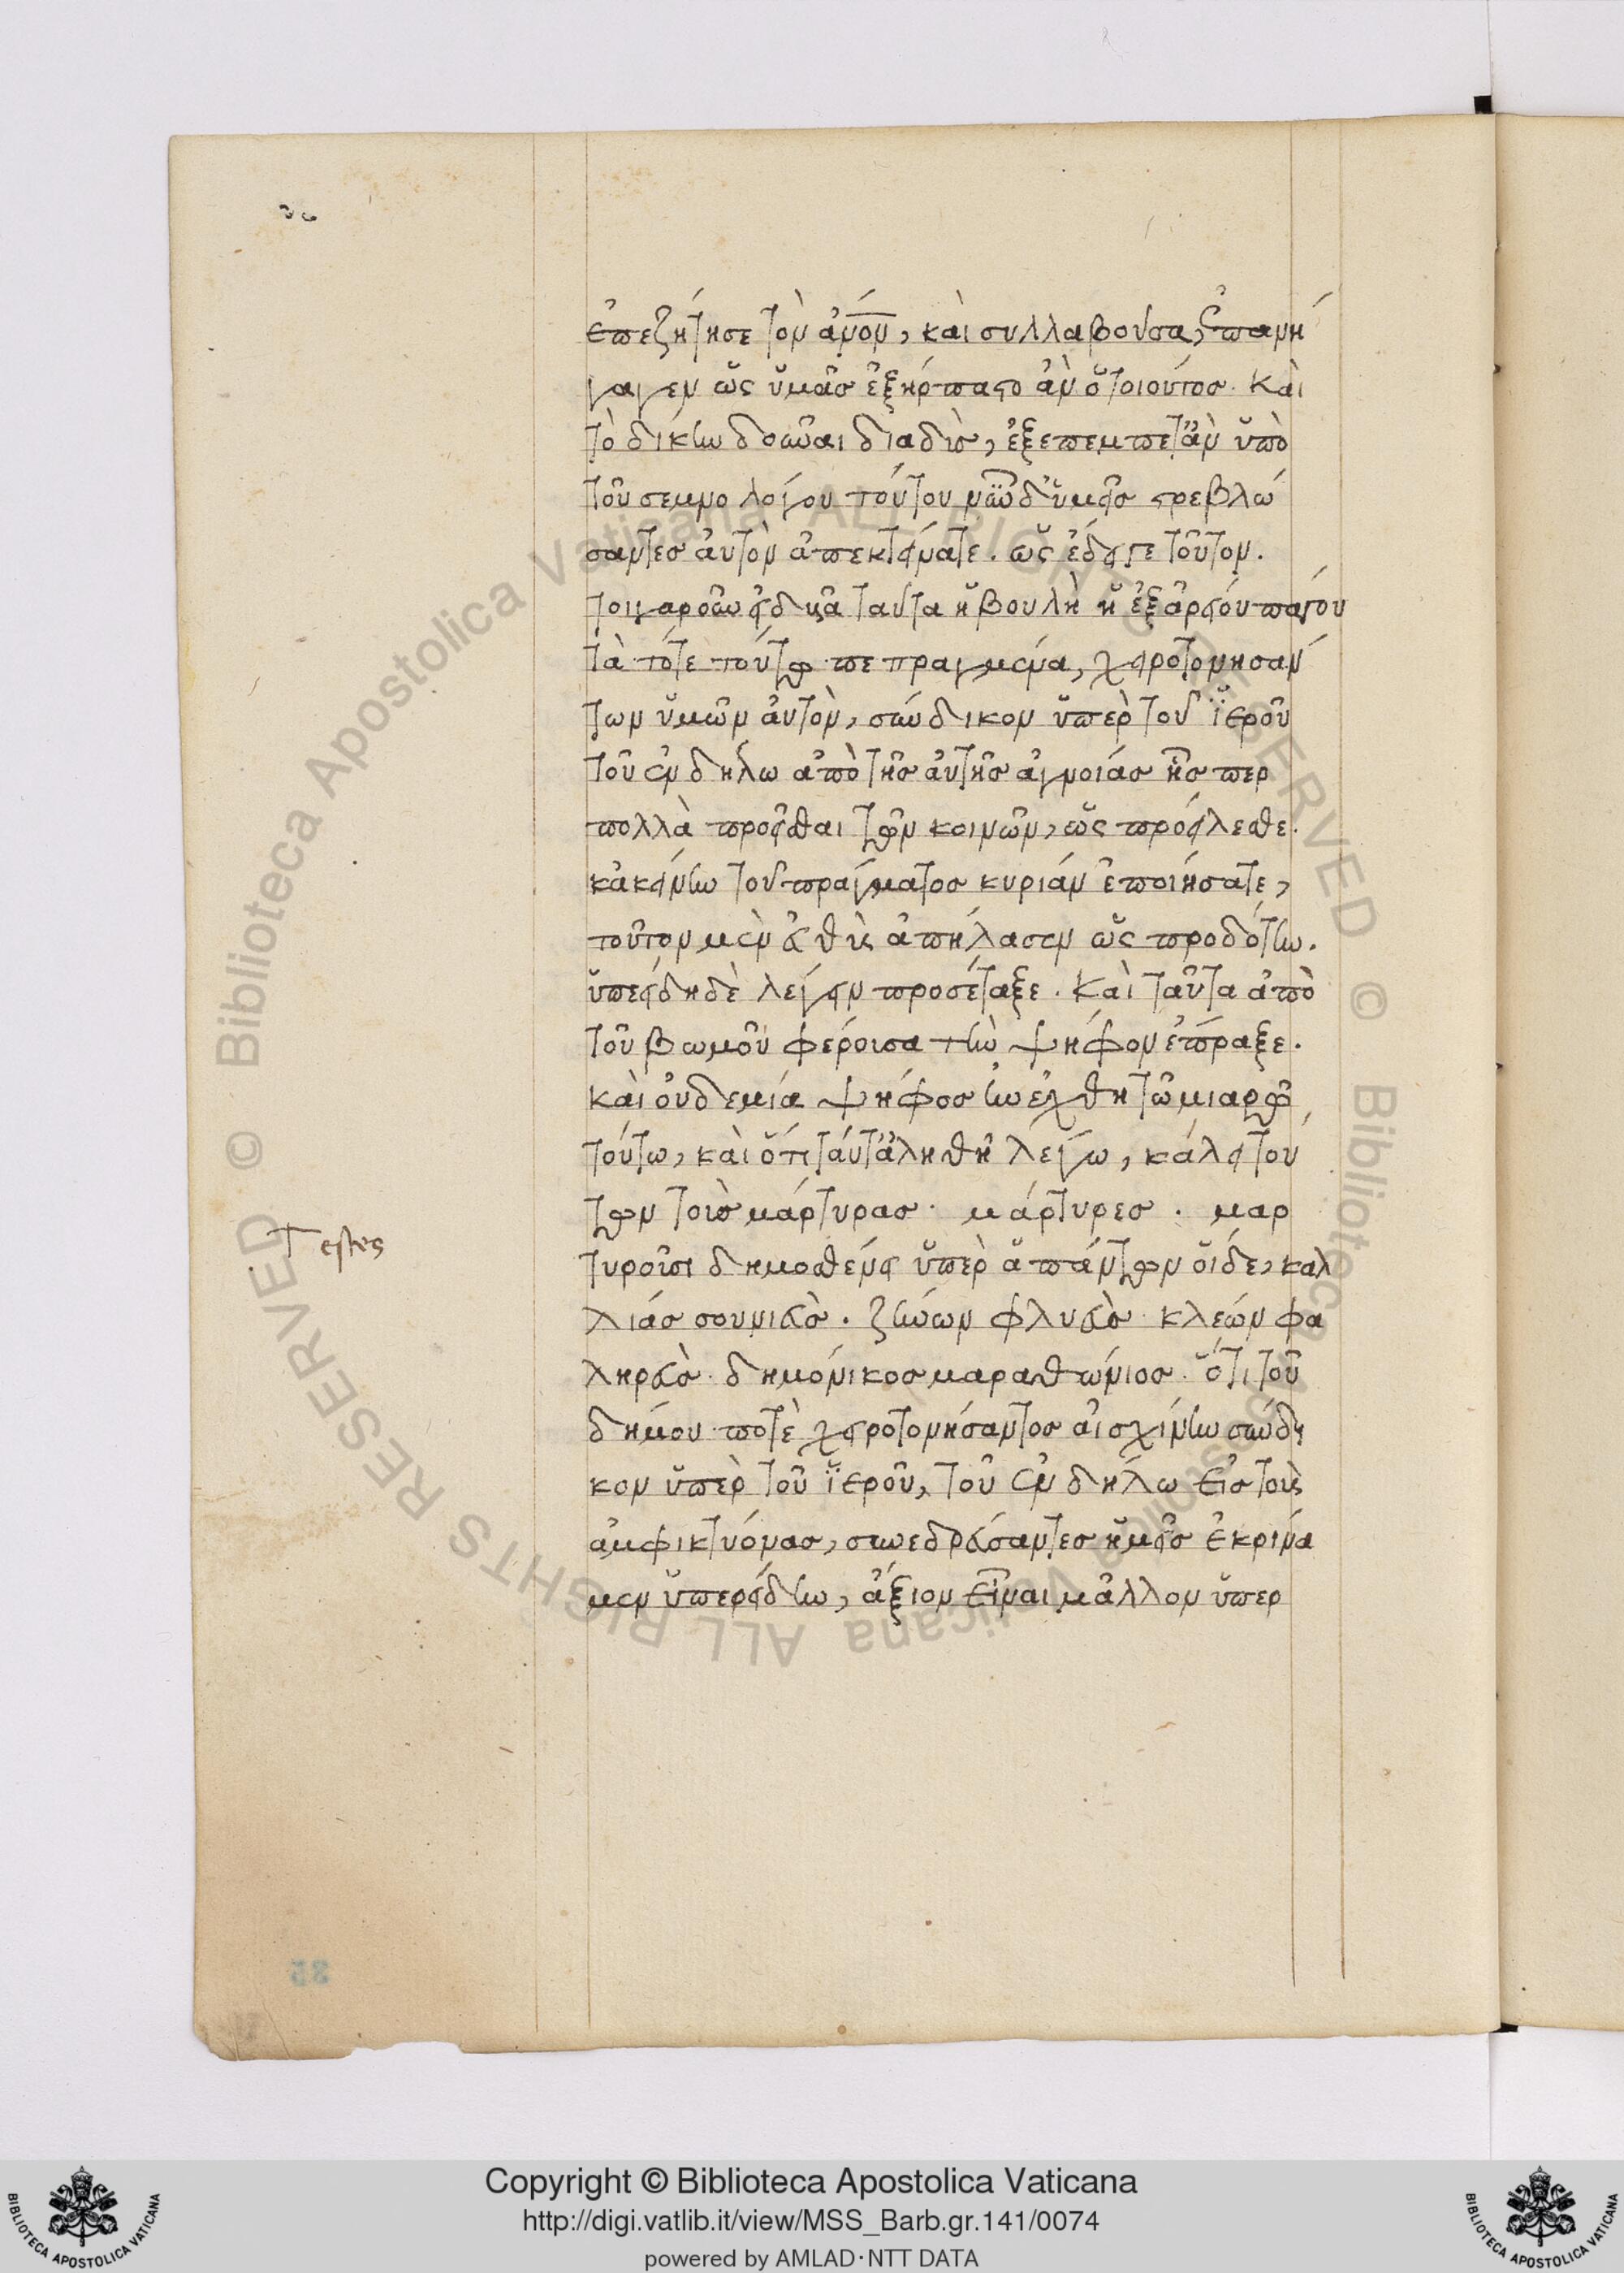 ἐπεζήτησε τὸν ἄνον, καὶ συλλαβοῦσα, ἐπανή
γαγεν ὡς ὑμᾶς ἐξήρπαστο ἂν ὁ τοιοῦτος. καὶ
τὸ δίκην δοῦναι διαδὺς, ἐξεπέμπετ' ἂν ὑπὸ
τοῦ σεμνολόγου τούτου· νῦν δ' ὑμεῖς στρεβλώ
σαντες αὐτὸν ἀπεκτείνατε. ὡς ἔδει γε τοῦτον.
τοιγαροῦν εἰδυῖα ταῦτα ἡ βουλὴ ἡ ἐξ ἀρείου πάγου
τὰ τότε τούτῳ πεπραγμένα, χειροτονησάν
των ὑμῶν αὐτὸν, σύνδικον ὑπὲρ τοῦ ἱεροῦ
τοῦ ἐν δήλω ἀπὸ τῆς αὐτῆς ἀγνοίας ἧσπερ
πολλὰ προεῖσθαι τῶν κοινῶν, ὡς προείλεσθε.
κἀκείνην τοῦ πράγματος κυρίαν ἐποιήσατε,
τοῦτον μὲν εὐθὺς ἀπήλασεν ὡς προδότην.
ὑπερείδη δὲ λέγειν προσέταξε. καὶ ταῦτα ἀπὸ
τοῦ βωμοῦ φέρουσα τὴν ψῆφον ἔπραξε.
καὶ οὐδεμία ψῆφος ἠνέχθη τῶ μιαρῷ
τούτω, καὶ ὅτι ταῦτ' ἀληθῆ λέγω, κάλει τού
των τοὺς μάρτυρας. μάρτυρες. μαρ
τυροῦσι δημοσθένει ὑπὲρ ἁπάντων οἵδε, καλ
λίας σουνιεὺς. ζήνων φλυεὺς. κλέων φα
ληρεὺς. δημόνικος μαραθώνιος. ὅτι τοῦ
δήμου ποτὲ χειροτονήσαντος αἰσχίνην σύνδι
κον ὑπὲρ τοῦ ἱεροῦ, τοῦ ἐν δήλω εἰς τοὺς
ἀμφικτύονας, συνεδρεύσαντες ἡμεῖς ἐκρίνα
μεν ὑπερείδην, ἄξιον εἶναι μᾶλλον ὑπερ
Testes
35
© Biblioteca Apostolica Vaticana ALL RIGHTS RESERVED © Biblioteca Apostolica Vaticana ALL RIGHTS RESERVED
BIBLIOTECA APOSTOLICA VATICANA
Copyright © Biblioteca Apostolica Vaticana
http://digi.vatlib.it/view/MSS_Barb.gr.141/0074
powered by AMLAD·NTT DATA
BIBLIOTECA APOSTOLICA VATICANA